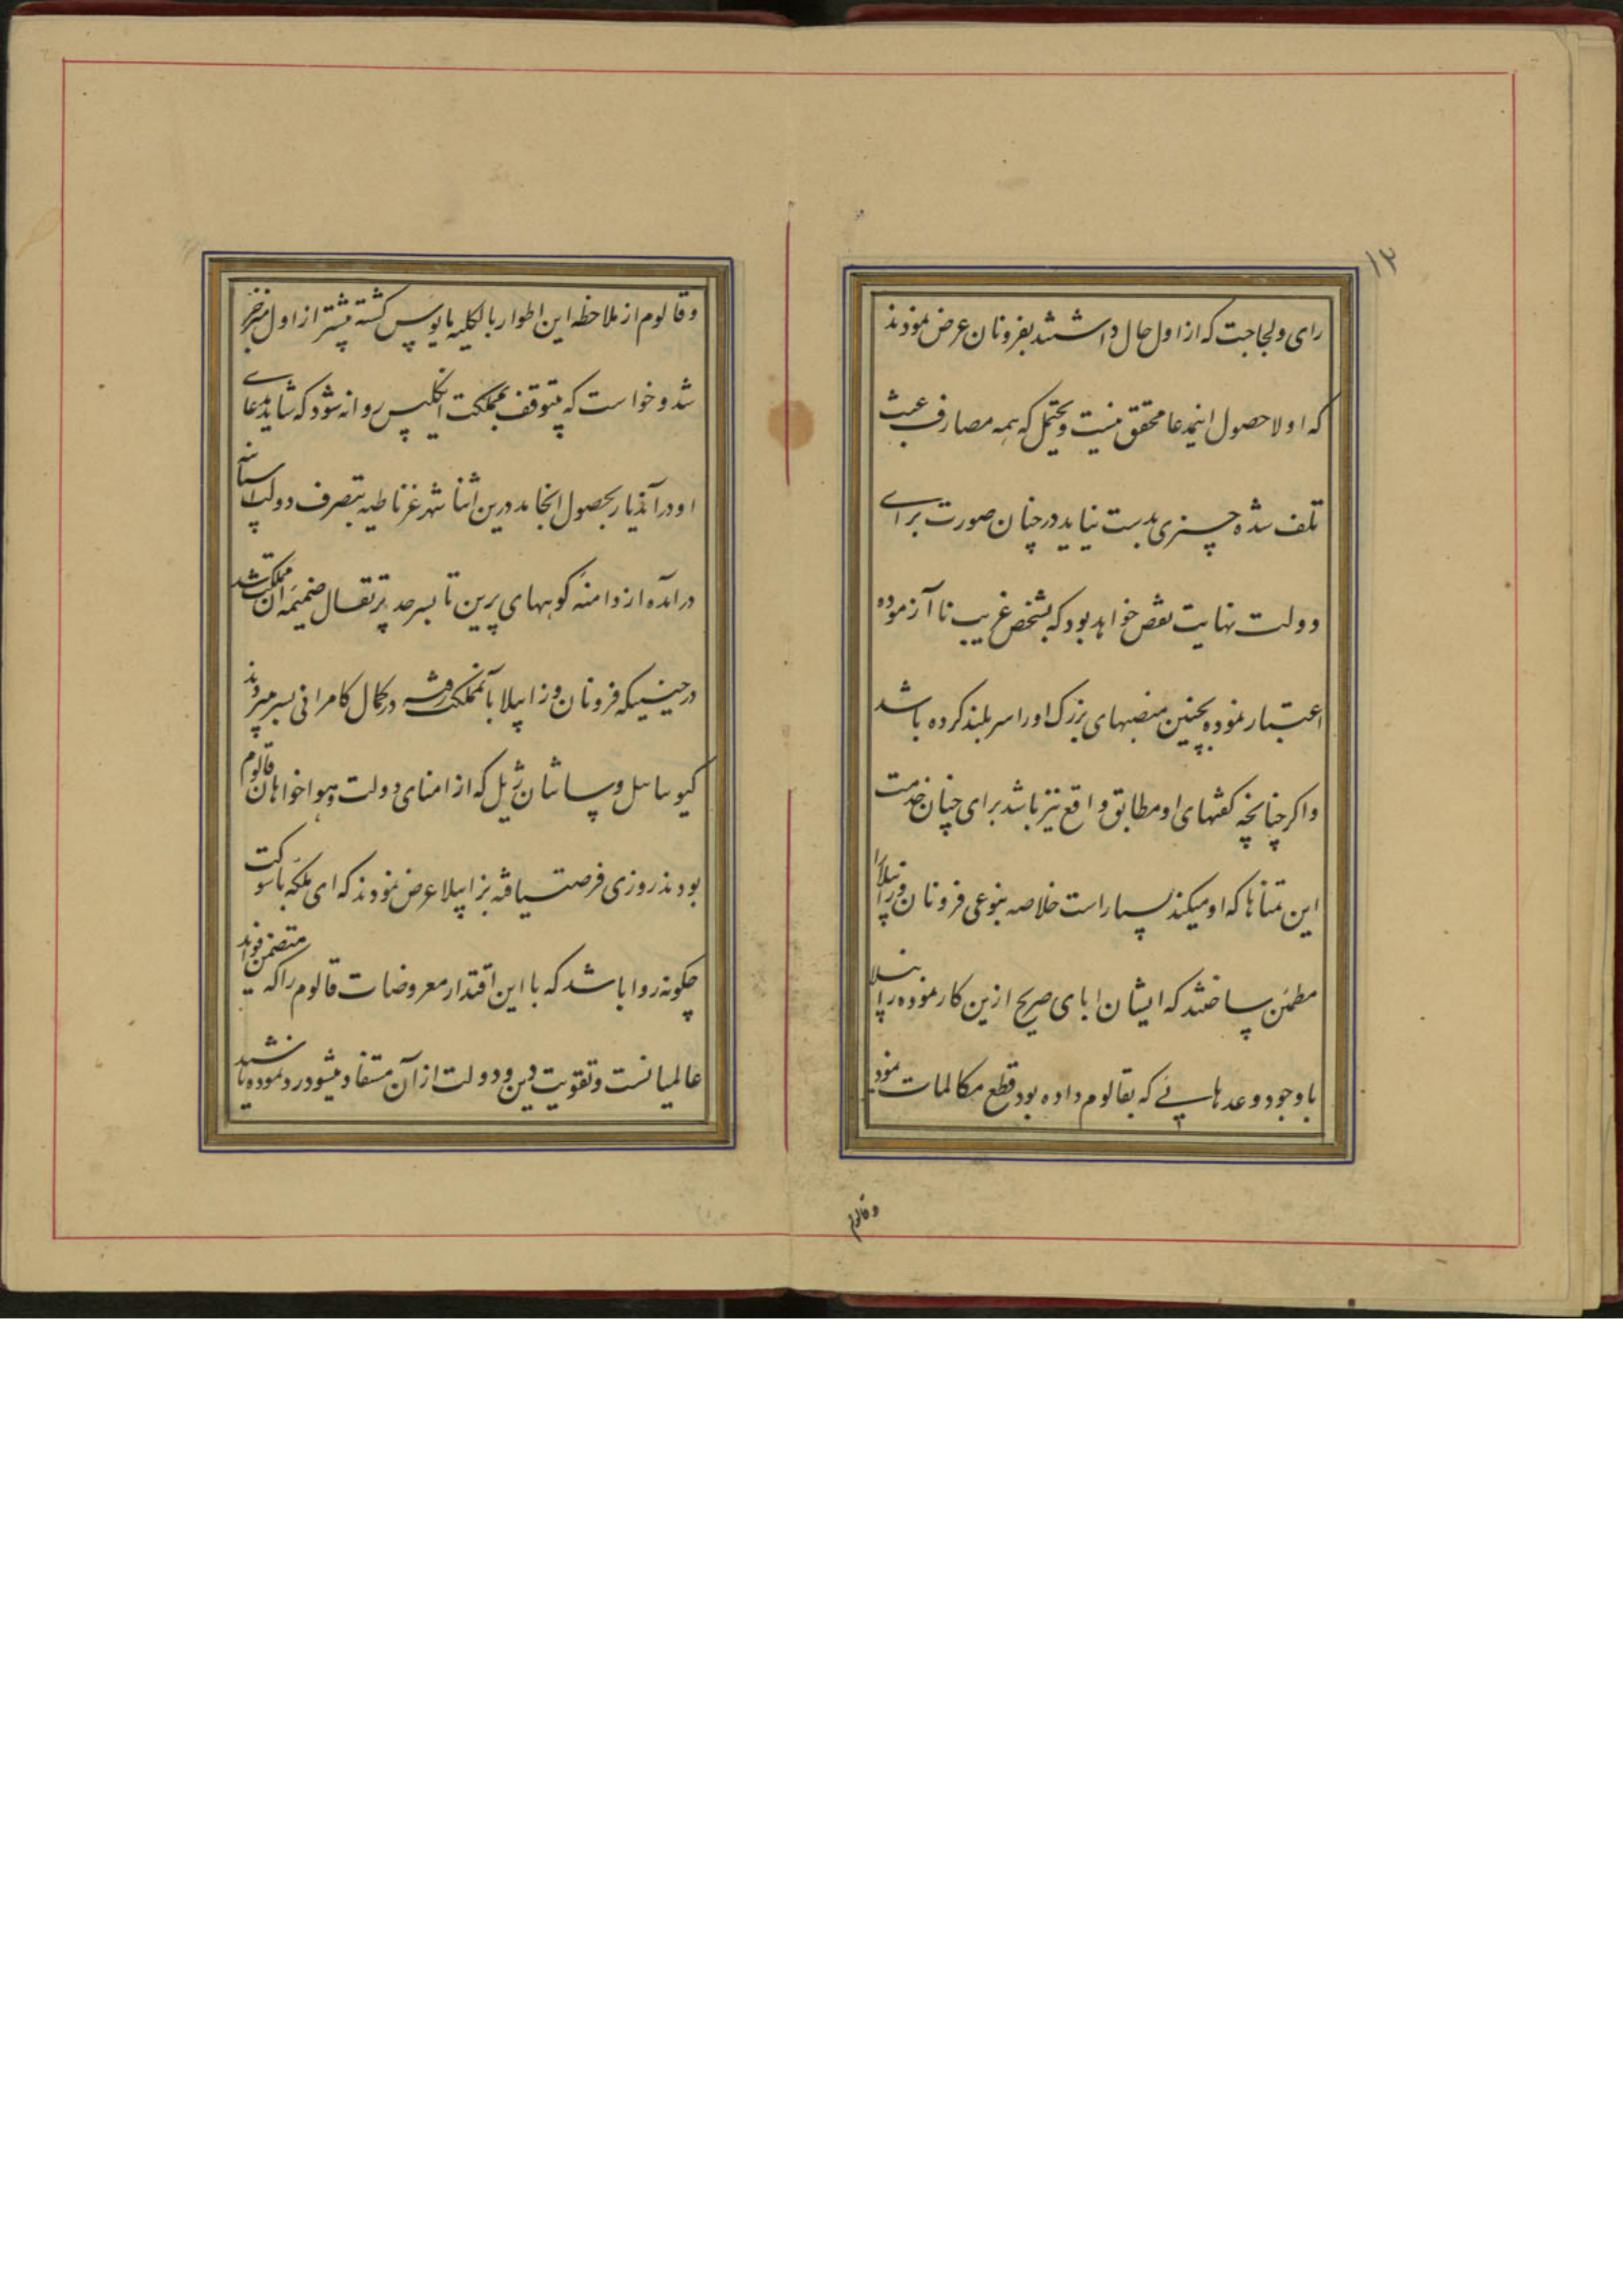 ۱۳
رای و لجاجت که از اول حال داشتند بفرونان عرض نمودند
که اولا حصول اینمدعا محقق نیست و یحتمل که همه مصارف عبث
تلف شده چیزی بدست نیاید در چنان صورت برای
دولت نهایت نقص خواهد بود که بشخص غریب نا آزموده
اعتبار نموده بچنین منصبهای بزرک او را سر بلند کرده باشد
واکر چنانچه کفتهای او مطابق واقع نیز باشد برای چنان خدمت
این تمناها که او میکند بسیار است خلاصه بنوعی فرونان وزاپیلا را
مطمئن ساختند که ایشان ابای صریح ازین کار نموده زاپیلا
با وجود وعدهایی که بقالوم داده بود قطع مکالمات نمود
وقالوم
وقالوم از ملاحظه این اطوار بالکلیه مایوس کشته بیشتر از اول منزجر
شد و خواست که بیتوقف بمملکت انکلیس روانه شود که شاید مدعای
او در آندیار بحصول انجامد درین اثنا شهر غرناطیه بتصرف دولت اسپانیه
درآمده از دامنه کوههای پرین تا بسرحد پرتقال ضمیمه آن مملکت شد
در حینیکه فرونان وزاپیلا بآنمملکت رفته در کمال کامرانی بسر میبردند
کیوسانیل و سانتان ژیل که از امنای دولت و هواخواهان قالوم
بودند روزی فرصت یافته بزاپیلا عرض نمودند که ای ملکه با شوکت
چکونه روا باشد که با این اقتدار معروضات قالوم را که متضمن فواید
عالمیانست و تقویت دین و دولت از آن مستفاد میشود رد نموده باشید